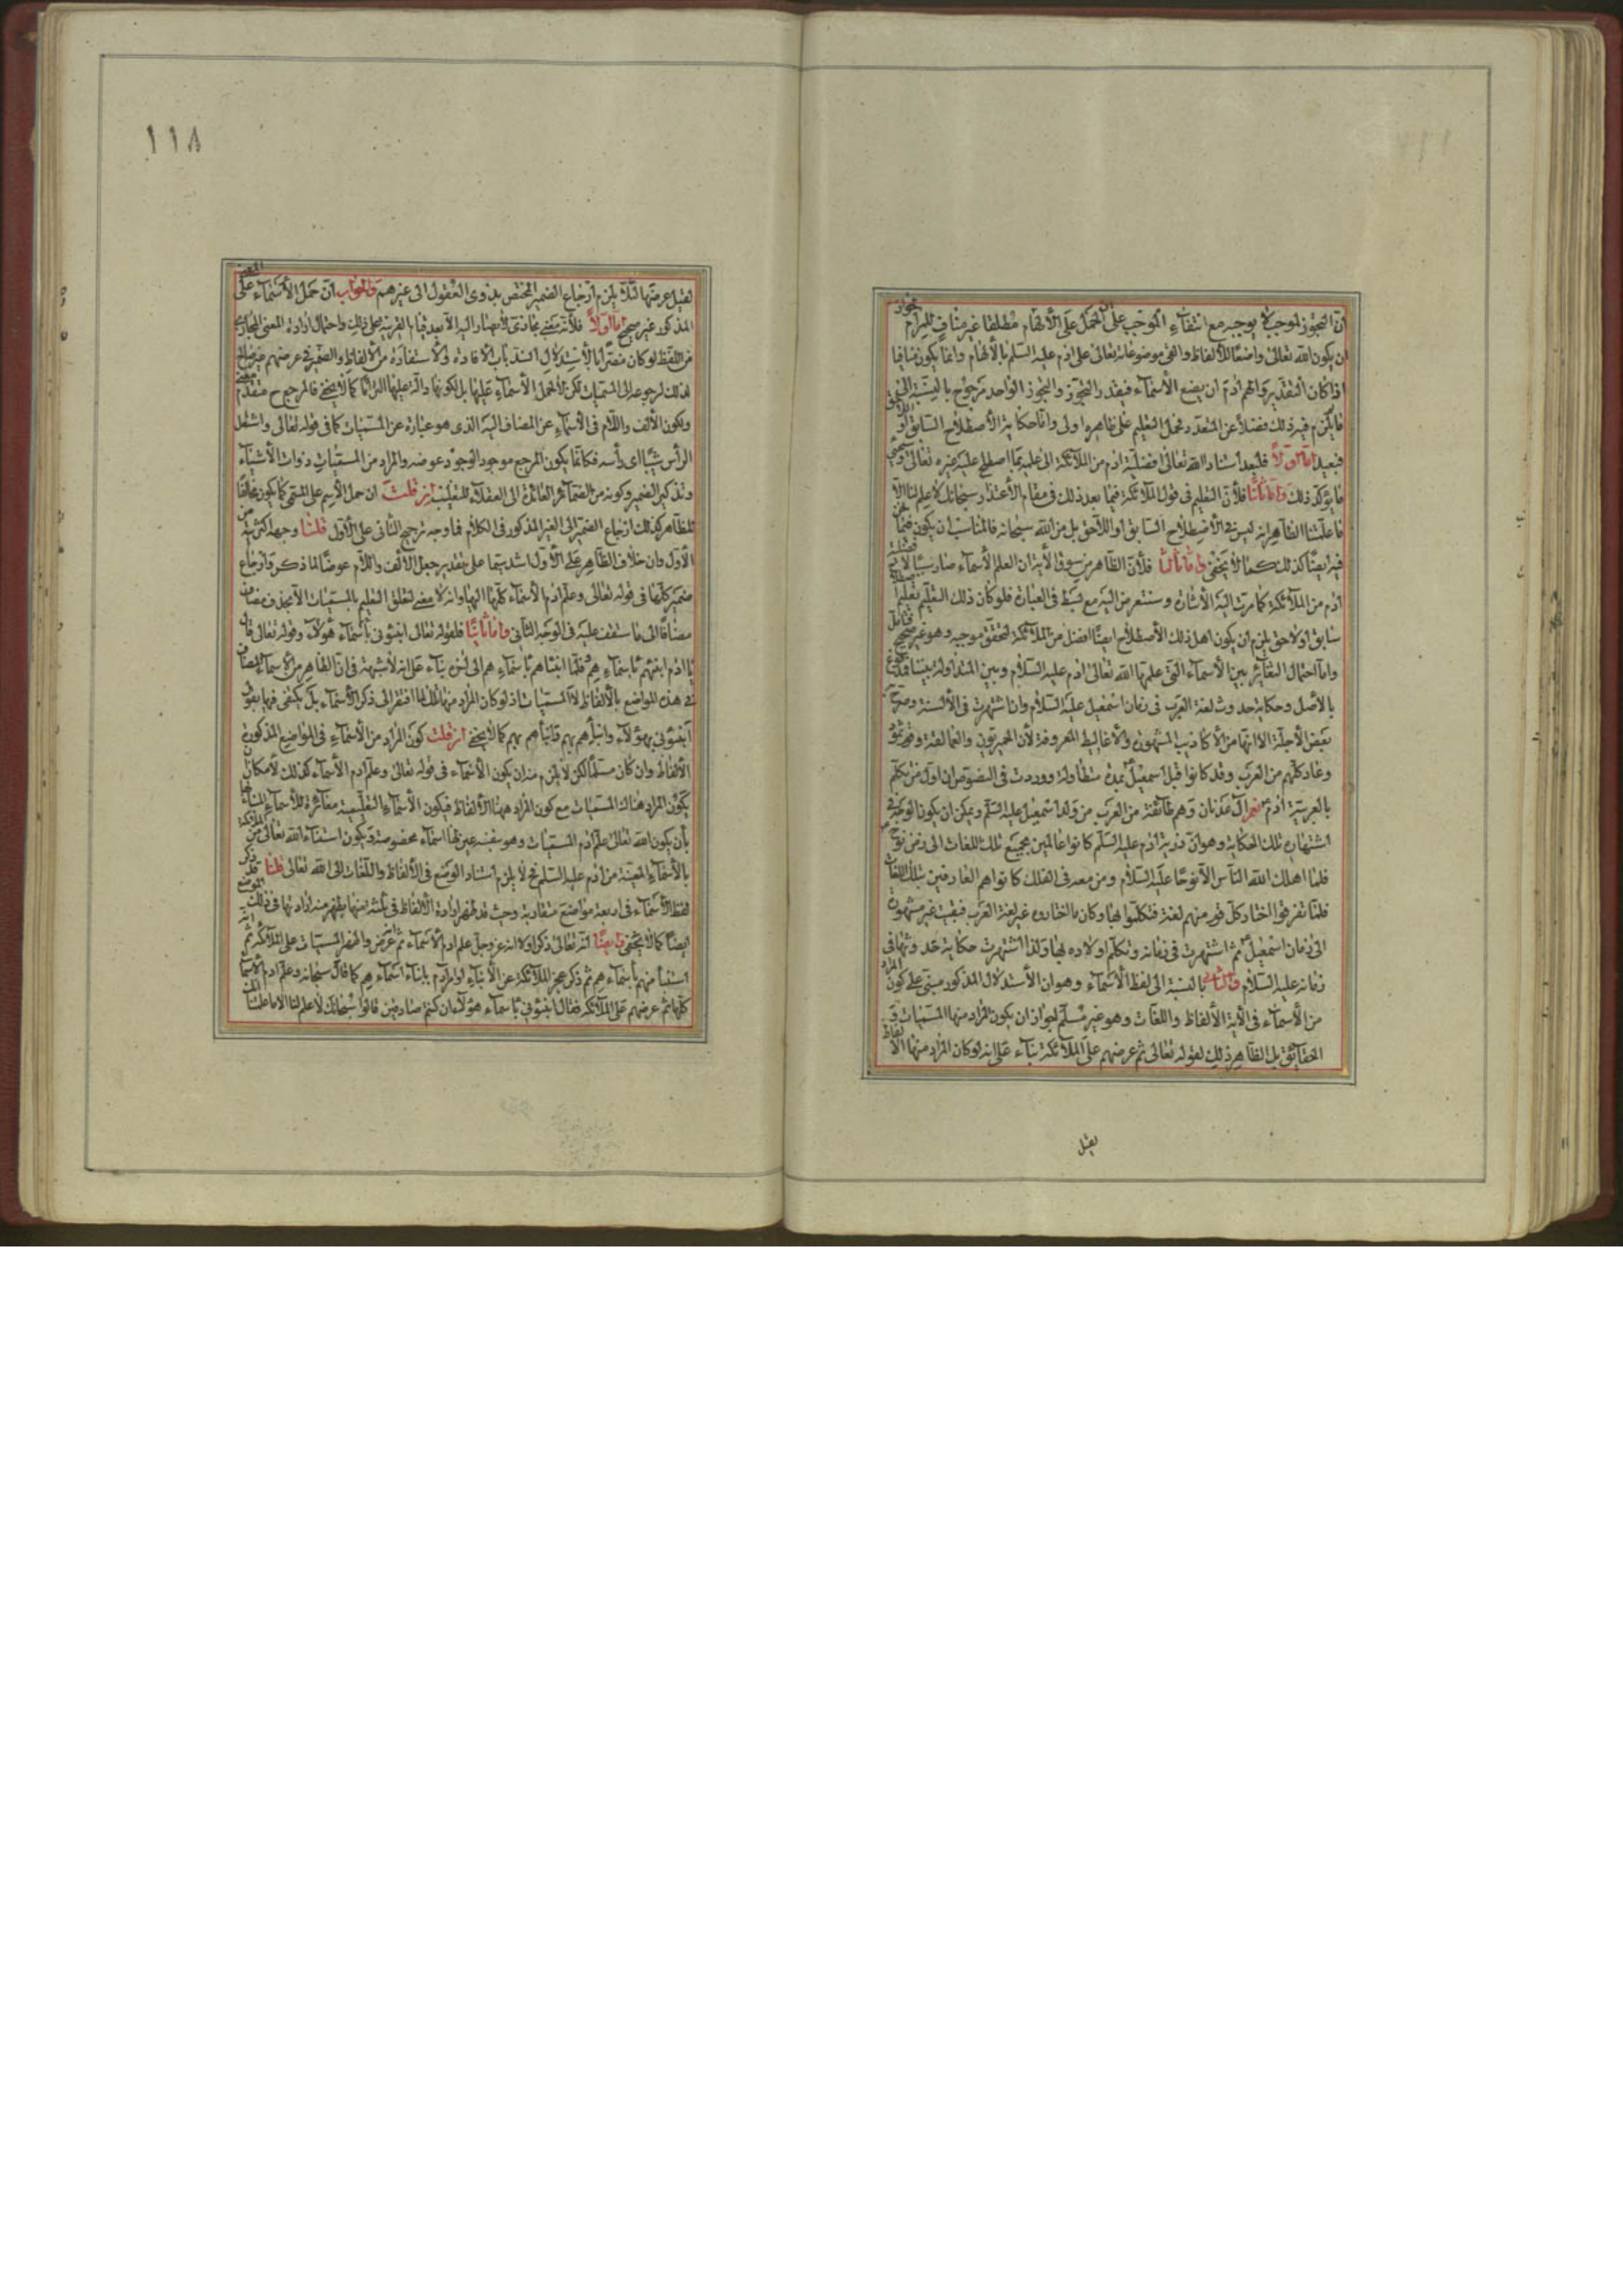 ان التجوز لموجب لا يوجبه مع انتفاء الموجب على الحمل على الالهام مطلقا غير مناف للمرام لجواز
ان يكون الله تعالى واضعا للالفاظ والقى موضوعاته تعالى على ادم عليه السلم بالالهام وانما يكون منافيا
اذا كان التقدير والهم ادم ان يضع الاسماء فيقدر التجوز والتجوز الواحد مرجوح بالنسبة الى
ما يلزم فيه ذلك فضلا عن المتعدد فحمل التعليم على ظاهره اولى واما حكاية الاصطلاح السابق او اللاحق
فبعيد اما اولا فلبعد اسناد الله تعالى افضلية ادم من الملائكة الى علمه بما اصطلح عليه غيره تعالى
ما يؤكد ذلك واما ثانيا فلان التعليم في قول الملائكة فيما بعد ذلك في مقام الاعتذار سبحانك لا علم لنا الا
ما علمتنا الظاهر انه ليس في الاصطلاح السابق او اللاحق بل من الله سبحانه فالمناسب ان يكون فيما نحن
فيه ايضا كذلك كما لا يخفى واما ثالثا فلان الظاهر من سوق الاية ان العلم الاسماء صار سببا لافضلية
ادم من الملائكة كما مرت اليه الاشارة وسنشير من اليه مع بسط في العبارة فلو كان ذلك التعليم تعليم
سابق او لاحق يلزم ان يكون اهل ذلك الاصطلاح ايضا افضل من الملائكة لتحقق موجبه وهو غير صحيح فتامل
واما احتمال التغاير بين الاسماء التي علمها الله تعالى ادم عليه السلام وبين المتداولة بيننا فمدفوع
بالاصل وحكاية حدوث لغة العرب في زمان اسمعيل عليه السلام وان اشتهرت في الالسنة وصرح به
بعض الاجلة الا انها من الاكاذيب المشهورة والاغاليط المعروفة لان الحميريون والعمالقة وقوم ثمود
وعاد كلهم من العرب وقد كانوا قبل اسمعيل بمدة متطاولة ووردت في النصوص ان اول من تكلم
بالعربية ادم نعم ال عدنان وهم طائفة من العرب من ولد اسمعيل عليه السلم ويمكن ان يكون الوجه في
اشتهار تلك الحكاية وهو ان ذرية ادم عليه السلم كانوا عالمين بجميع تلك اللغات الى زمن نوح ع
فلما اهلك الله الناس الا نوحا عليه السلام ومن معه في الفلك كانوا هم العارفين بتلك اللغات
فلما تفرقوا اختار كل قوم منهم لغة فتكلموا بها وكان ما اختاروه غير لغة العرب فبقيت غير مشهورة
الى زمان اسمعيل ثم اشتهرت في زمانه وتكلم اولاده بها ولذا اشتهرت حكاية حدوثها في
زمانه عليه السلام والثاني بالنسبة الى لفظ الاسماء وهو ان الاستدلال المذكور مبنى على كون المراد
من الاسماء في الاية الالفاظ واللغات وهو غير مسلم لجواز ان يكون المراد منها المسميات و
الحقايق بل الظاهر ذلك لقوله تعالى ثم عرضهم على الملائكة بناء على انه لو كان المراد منها الالفاظ
لقيل
١١٨
لقيل عرضها لئلا يلزم ارجاع الضمير المختص بذوى العقول الى غيرهم والجواب ان حمل الاسماء على المعنى
المذكور غير صحيح اما اولا فلانه معنى مجازى لا يصار اليه الا بعد قيام القرينة على ذلك واحتمال ارادة المعنى المجازى
من اللفظ لو كان مضرا بالاستدلال انسد باب الافادة والاستفادة من الالفاظ والضمير في عرضهم غير صالح
لذلك لرجوعه الى المسميات لكن لا لحمل الاسماء عليها بل لكونها دالة عليها التزاما كما لا يخفى فالمرجع ح متقدم معنى
ويكون الالف واللام في الاسماء عن المضاف اليه الذى هو عبارة عن المسميات كما في قوله تعالى واشتعل
الراس شيبا اى راسه فكانما يكون المرجع موجودا لوجود عوضه والمراد من المسميات ذوات الاشياء
وتذكير الضمير وكونه من الضمائر العائدة الى العقلاء للتغليب ان قلت ان حمل الاسم على المسمى كما يكون مخالفا
للظاهر كذلك ارجاع الضمير الى الغير المذكور في الكلام فما وجه ترجيح الثانى على الاول قلنا وجهه اكثرية من
الاول وان خلاف الظاهر على الاول اشد سيما على تقدير جعل الالف واللام عوضا لما ذكر وارجاع
ضمير كلها في قوله تعالى وعلم ادم الاسماء كلها اليها وانه لا معنى لتعلق التعليم بالمسميات الا بحذف مضاف
مضافا الى ما ستقف عليه في الوجه الثانى واما ثانيا فلقوله تعالى انبئونى باسماء هؤلاء وقوله تعالى قال
يا ادم انبئهم باسمائهم فلما انباهم باسمائهم الى اخره بناء على انه لا شبهة في ان الظاهر من الاسماء المضاف
في هذه المواضع بالالفاظ لا المسميات اذ لو كان المراد منها ذلك لما افتقر الى ذكر الاسماء بل يكتفى فيها بقوله
انبئونى بهؤلاء وانبئهم بهم فانباهم بهم كما لا يخفى ان قلت كون المراد من الاسماء في المواضع المذكورة
الالفاظ وان كان مسلما لكن لا يلزم منه ان يكون الاسماء في قوله تعالى وعلم ادم الاسماء كذلك لامكان ان
يكون المراد هناك المسميات مع كون المراد ههنا الالفاظ فيكون الاسماء التعليمية مغايرة للاسماء
بان يكون الله تعالى علم ادم المسميات وهو بنفسه عين لها اسماء مخصوصة ويكون
بالاسماء المعينة من ادم عليه السلم فح لا يلزم اسناد الوضع في الالفاظ واللغات الى الله تعالى قلنا قد ذكر
لفظ الاسماء في اربعة مواضع متقاربة وحيث قد ظهر ارادة الالفاظ في ثلثة منها يظهر منه ارادتها في ذلك الموضع
ايضا كما لا يخفى وايضا انه تعالى ذكر اولا انه عز وجل علم ادم الاسماء ثم عرض واظهر المسميات على الملائكة ثم
استنبأ منهم باسمائهم ثم ذكر عجز الملائكة عن الانباء او امر ادم بانباء اسمائهم كما قال سبحانه وعلم ادم الاسماء
كلها ثم عرضهم على الملائكة فقال انبئونى باسماء هؤلاء ان كنتم صادقين قالوا سبحانك لا علم لنا الا ما علمتنا